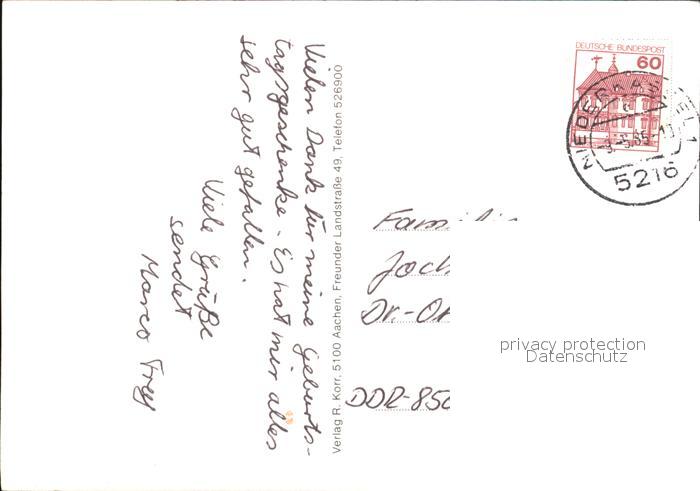 Vielen Dank für meine Geburts-
tagsgeschenke. Es hat mir alles
sehr gut gefallen.
Viele Grüße
sendet
Marco Frey
Verlag R. Korr. 5100 Aachen, Freunder Landstraße 49, Telefon 526900
DEUTSCHE BUNDESPOST
60
NIEDERKASSEL 1
5216
Familie
Joch
Dr.-
DDR-850
privacy protection
Datenschutz